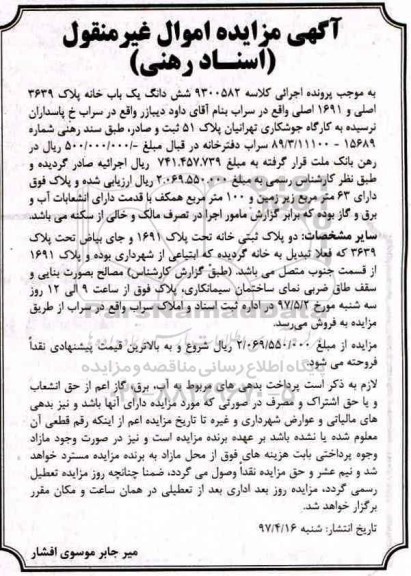 آگهی مزایده اموال غیرمنقول
(اسناد رهنی)
به موجب پرونده اجرائی کلاسه ۹۳۰۰۵۸۲ شش دانگ یک باب خانه پلاک ۳۶۳۹
اصلی و ۱۶۹۱ اصلی واقع در سراب بنام آقای داود دیبازر واقع در سراب خ پاسداران
نرسیده به کارگاه جوشکاری تهرانیان پلاک ۵۱ ثبت و صادر، طبق سند رهنی شماره
۱۵۶۸۹ - ۸۹/۳/۱۱۱۰۰ سراب دفترخانه در قبال مبلغ -/۵۰۰/۰۰۰/۰۰۰ ریال در
رهن بانک ملت قرار گرفته به مبلغ ۷۴۱.۴۵۷.۷۳۹ ریال اجرائیه صادر گردیده و
طبق نظر کارشناس رسمی به مبلغ ۲.۰۶۹.۵۵۰.۰۰۰ ریال ارزیابی شده و پلاک فوق
دارای ۶۳ متر مربع زیر زمین و ۱۰۰ متر مربع همکف با قدمت دارای انشعابات آب و
برق و گاز بوده که برابر گزارش مامور اجرا در تصرف مالک و خالی از سکنه می باشد.
سایر مشخصات: دو پلاک ثبتی خانه تحت پلاک ۱۶۹۱ و جای بیاض تحت پلاک
۳۶۳۹ که فعلا تبدیل به خانه گردیده که ابتیاعی از شهرداری بوده و پلاک ۱۶۹۱
از قسمت جنوب متصل می باشد. (طبق گزارش کارشناس) مصالح بصورت بنایی و
سقف طاق ضربی نمای ساختمان سیمانکاری، پلاک فوق از ساعت ۹ الی ۱۲ روز
سه شنبه مورخ ۹۷/۵/۲ در اداره ثبت اسناد و املاک سراب واقع در سراب از طریق
مزایده به فروش می‌رسد.
مزایده از مبلغ ۲/۰۶۹/۵۵۰/۰۰۰ ریال شروع و به بالاترین قیمت پیشنهادی نقداً
فروخته می شود.
لازم به ذکر است پرداخت بدهی های مربوط به آب، برق، گاز اعم از حق انشعاب
و یا حق اشتراک و مصرف در صورتی که مورد مزایده دارای آنها باشد و نیز بدهی
های مالیاتی و عوارض شهرداری و غیره تا تاریخ مزایده اعم از اینکه رقم قطعی آن
معلوم شده یا نشده باشد بر عهده برنده مزایده است و نیز در صورت وجود مازاد
وجوه پرداختی بابت هزینه های فوق از محل مازاد به برنده مزایده مسترد خواهد
شد و نیم عشر و حق مزایده نقداً وصول می گردد، ضمنا چنانچه روز مزایده تعطیل
رسمی گردد، مزایده روز بعد اداری بعد از تعطیلی در همان ساعت و مکان مقرر
برگزار خواهد شد.
تاریخ انتشار: شنبه ۹۷/۴/۱۶
میر جابر موسوی افشار
پایگاه اطلاع رسانی مناقصه و مزایده